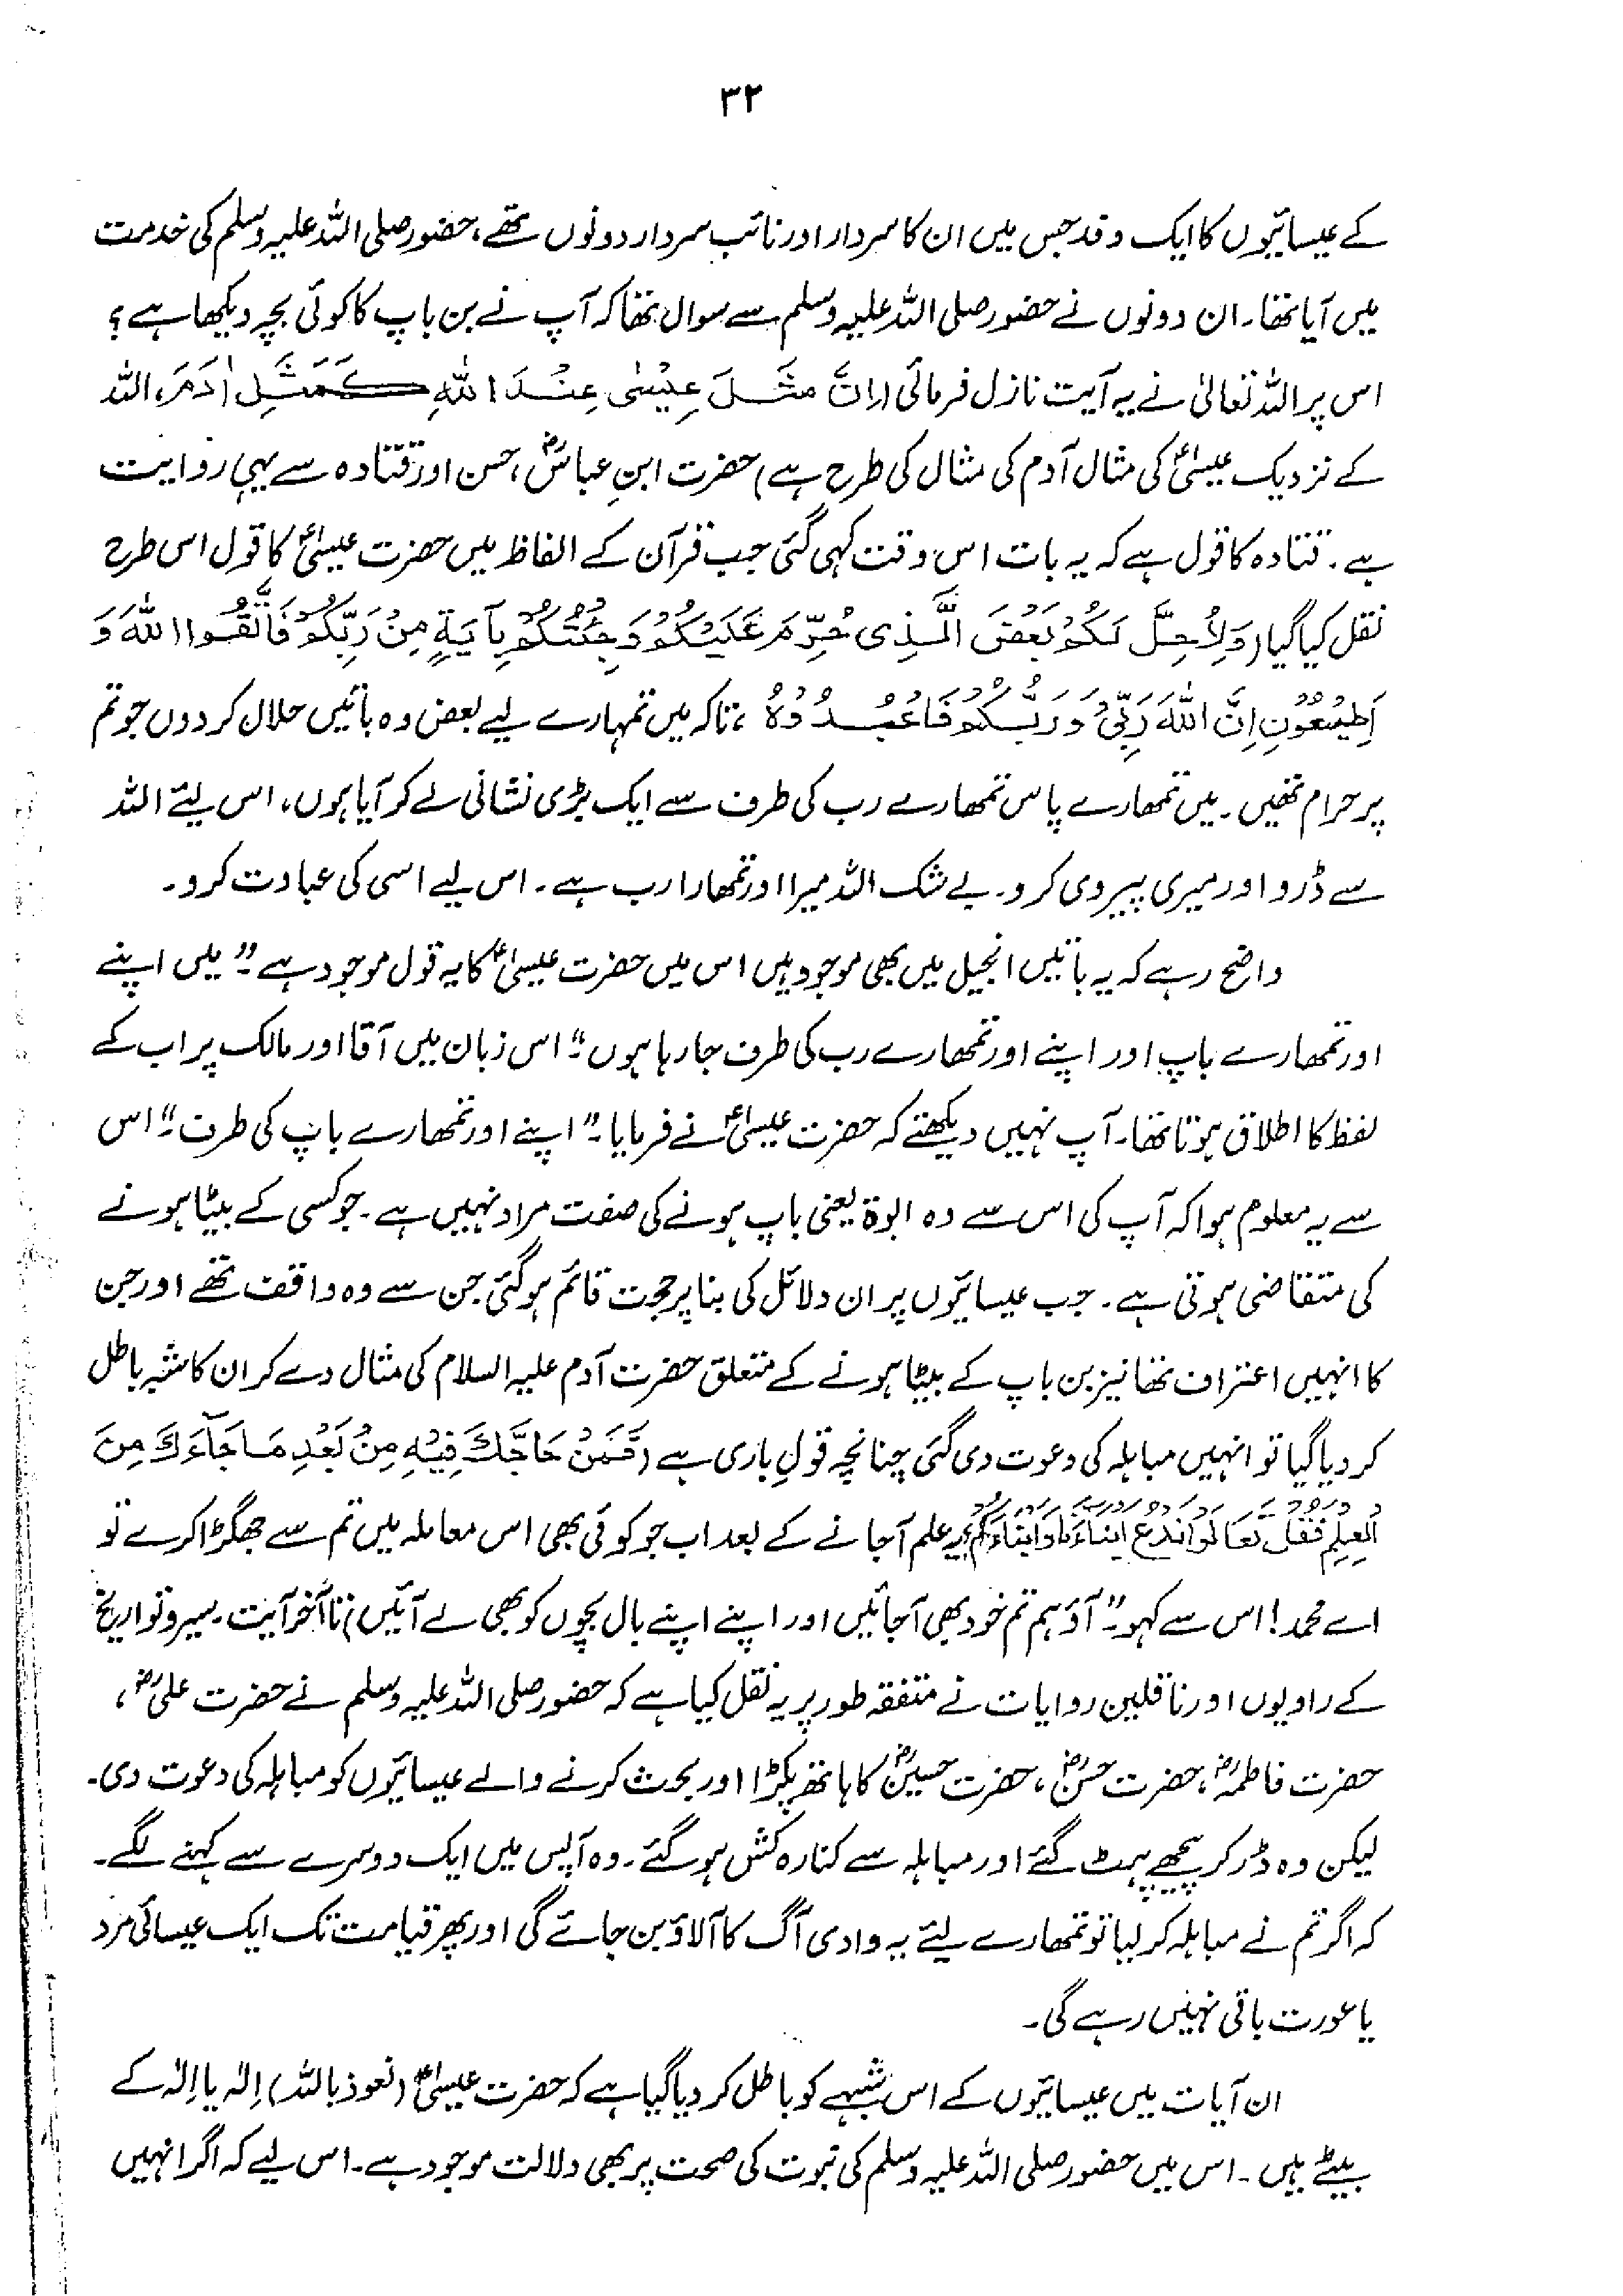 ۳۲
کے عیسائیوں کا ایک وفد جس میں ان کا سردار اور نائب سردار دونوں تھے، حضور صلی اللہ علیہ وسلم کی خدمت
میں آیا تھا۔ ان دونوں نے حضور صلی اللہ علیہ وسلم سے سوال تھا کہ آپ نے بن باپ کا کوئی بچہ دیکھا ہے؟
اس پر اللہ تعالیٰ نے یہ آیت نازل فرمائی (اِنَّ مَثَلَ عِیْسٰی عِنْدَ اللّٰہِ کَمَثَلِ اٰدَمَ، اللہ
کے نزدیک عیسیٰؑ کی مثال آدم کی مثال کی طرح ہے) حضرت ابنِ عباسؓ، حسن اور قتادہ سے یہی روایت
ہے۔ قتادہ کا قول ہے کہ یہ بات اس وقت کہی گئی جب قرآن کے الفاظ میں حضرت عیسیٰؑ کا قول اس طرح
نقل کیا گیا (وَلِاُحِلَّ لَکُمْ بَعْضَ الَّذِیْ حُرِّمَ عَلَیْکُمْ وَجِئْتُکُمْ بِآیَۃٍ مِنْ رَبِّکُمْ فَاتَّقُوا اللّٰہَ وَ
اَطِیْعُوْنِ اِنَّ اللّٰہَ رَبِّیْ وَرَبُّکُمْ فَاعْبُدُوْہُ، تاکہ میں تمہارے لیے بعض وہ باتیں حلال کر دوں جو تم
پر حرام تھیں۔ میں تمھارے پاس تمھارے رب کی طرف سے ایک بڑی نشانی لے کر آیا ہوں، اس لیئے اللہ
سے ڈرو اور میری پیروی کرو۔ بے شک اللہ میرا اور تمھارا رب ہے۔ اس لیے اسی کی عبادت کرو۔
واضح رہے کہ یہ باتیں انجیل میں بھی موجود ہیں اس میں حضرت عیسیٰؑ کا یہ قول موجود ہے۔" میں اپنے
اور تمھارے باپ اور اپنے اور تمھارے رب کی طرف جا رہا ہوں"۔ اس زبان میں آقا اور مالک پر اب کے
لفظ کا اطلاق ہوتا تھا۔ آپ نہیں دیکھتے کہ حضرت عیسیٰؑ نے فرمایا۔" اپنے اور تمھارے باپ کی طرف"۔ اس
سے یہ معلوم ہوا کہ آپ کی اس سے وہ ابوۃ یعنی باپ ہونے کی صفت مراد نہیں ہے۔ جو کسی کے بیٹا ہونے
کی متقاضی ہوتی ہے۔ جب عیسائیوں پر ان دلائل کی بنا پر حجت قائم ہو گئی جن سے وہ واقف تھے اور جن
کا انہیں اعتراف تھا نیز بن باپ کے بیٹا ہونے کے متعلق حضرت آدم علیہ السلام کی مثال دے کر ان کا شبہ باطل
کر دیا گیا تو انہیں مباہلہ کی دعوت دی گئی چنانچہ قولِ باری ہے (فَمَنْ حَاجَّكَ فِیْہِ مِنْ بَعْدِ مَا جَآءَكَ مِنَ
الْعِلْمِ فَقُلْ تَعَالَوْا نَدْعُ اَبْنَآءَنَا وَاَبْنَآءَکُمْ یہ علم آجانے کے بعد اب جو کوئی بھی اس معاملہ میں تم سے جھگڑا کرے تو
اے محمد! اس سے کہو۔" آؤ ہم تم خود بھی آجائیں اور اپنے اپنے بال بچوں کو بھی لے آئیں) تا آخر آیت۔ سیر و تواریخ
کے راویوں اور ناقلین روایات نے متفقہ طور پر یہ نقل کیا ہے کہ حضور صلی اللہ علیہ وسلم نے حضرت علیؓ،
حضرت فاطمہؓ، حضرت حسنؓ، حضرت حسینؓ کا ہاتھ پکڑا اور بحث کرنے والے عیسائیوں کو مباہلہ کی دعوت دی۔
لیکن وہ ڈر کر پیچھے ہٹ گئے اور مباہلہ سے کنارہ کش ہو گئے۔ وہ آپس میں ایک دوسرے سے کہنے لگے۔
کہ اگر تم نے مباہلہ کر لیا تو تمھارے لیئے یہ وادی آگ کا آلاؤ بن جائے گی اور پھر قیامت تک ایک عیسائی مرد
یا عورت باقی نہیں رہے گی۔
ان آیات میں عیسائیوں کے اس شبہے کو باطل کر دیا گیا ہے کہ حضرت عیسیٰؑ (نعوذ باللہ) اِلٰہ یا اِلٰہ کے
بیٹے ہیں۔ اس میں حضور صلی اللہ علیہ وسلم کی نبوت کی صحت پر بھی دلالت موجود ہے۔ اس لیے کہ اگر انہیں